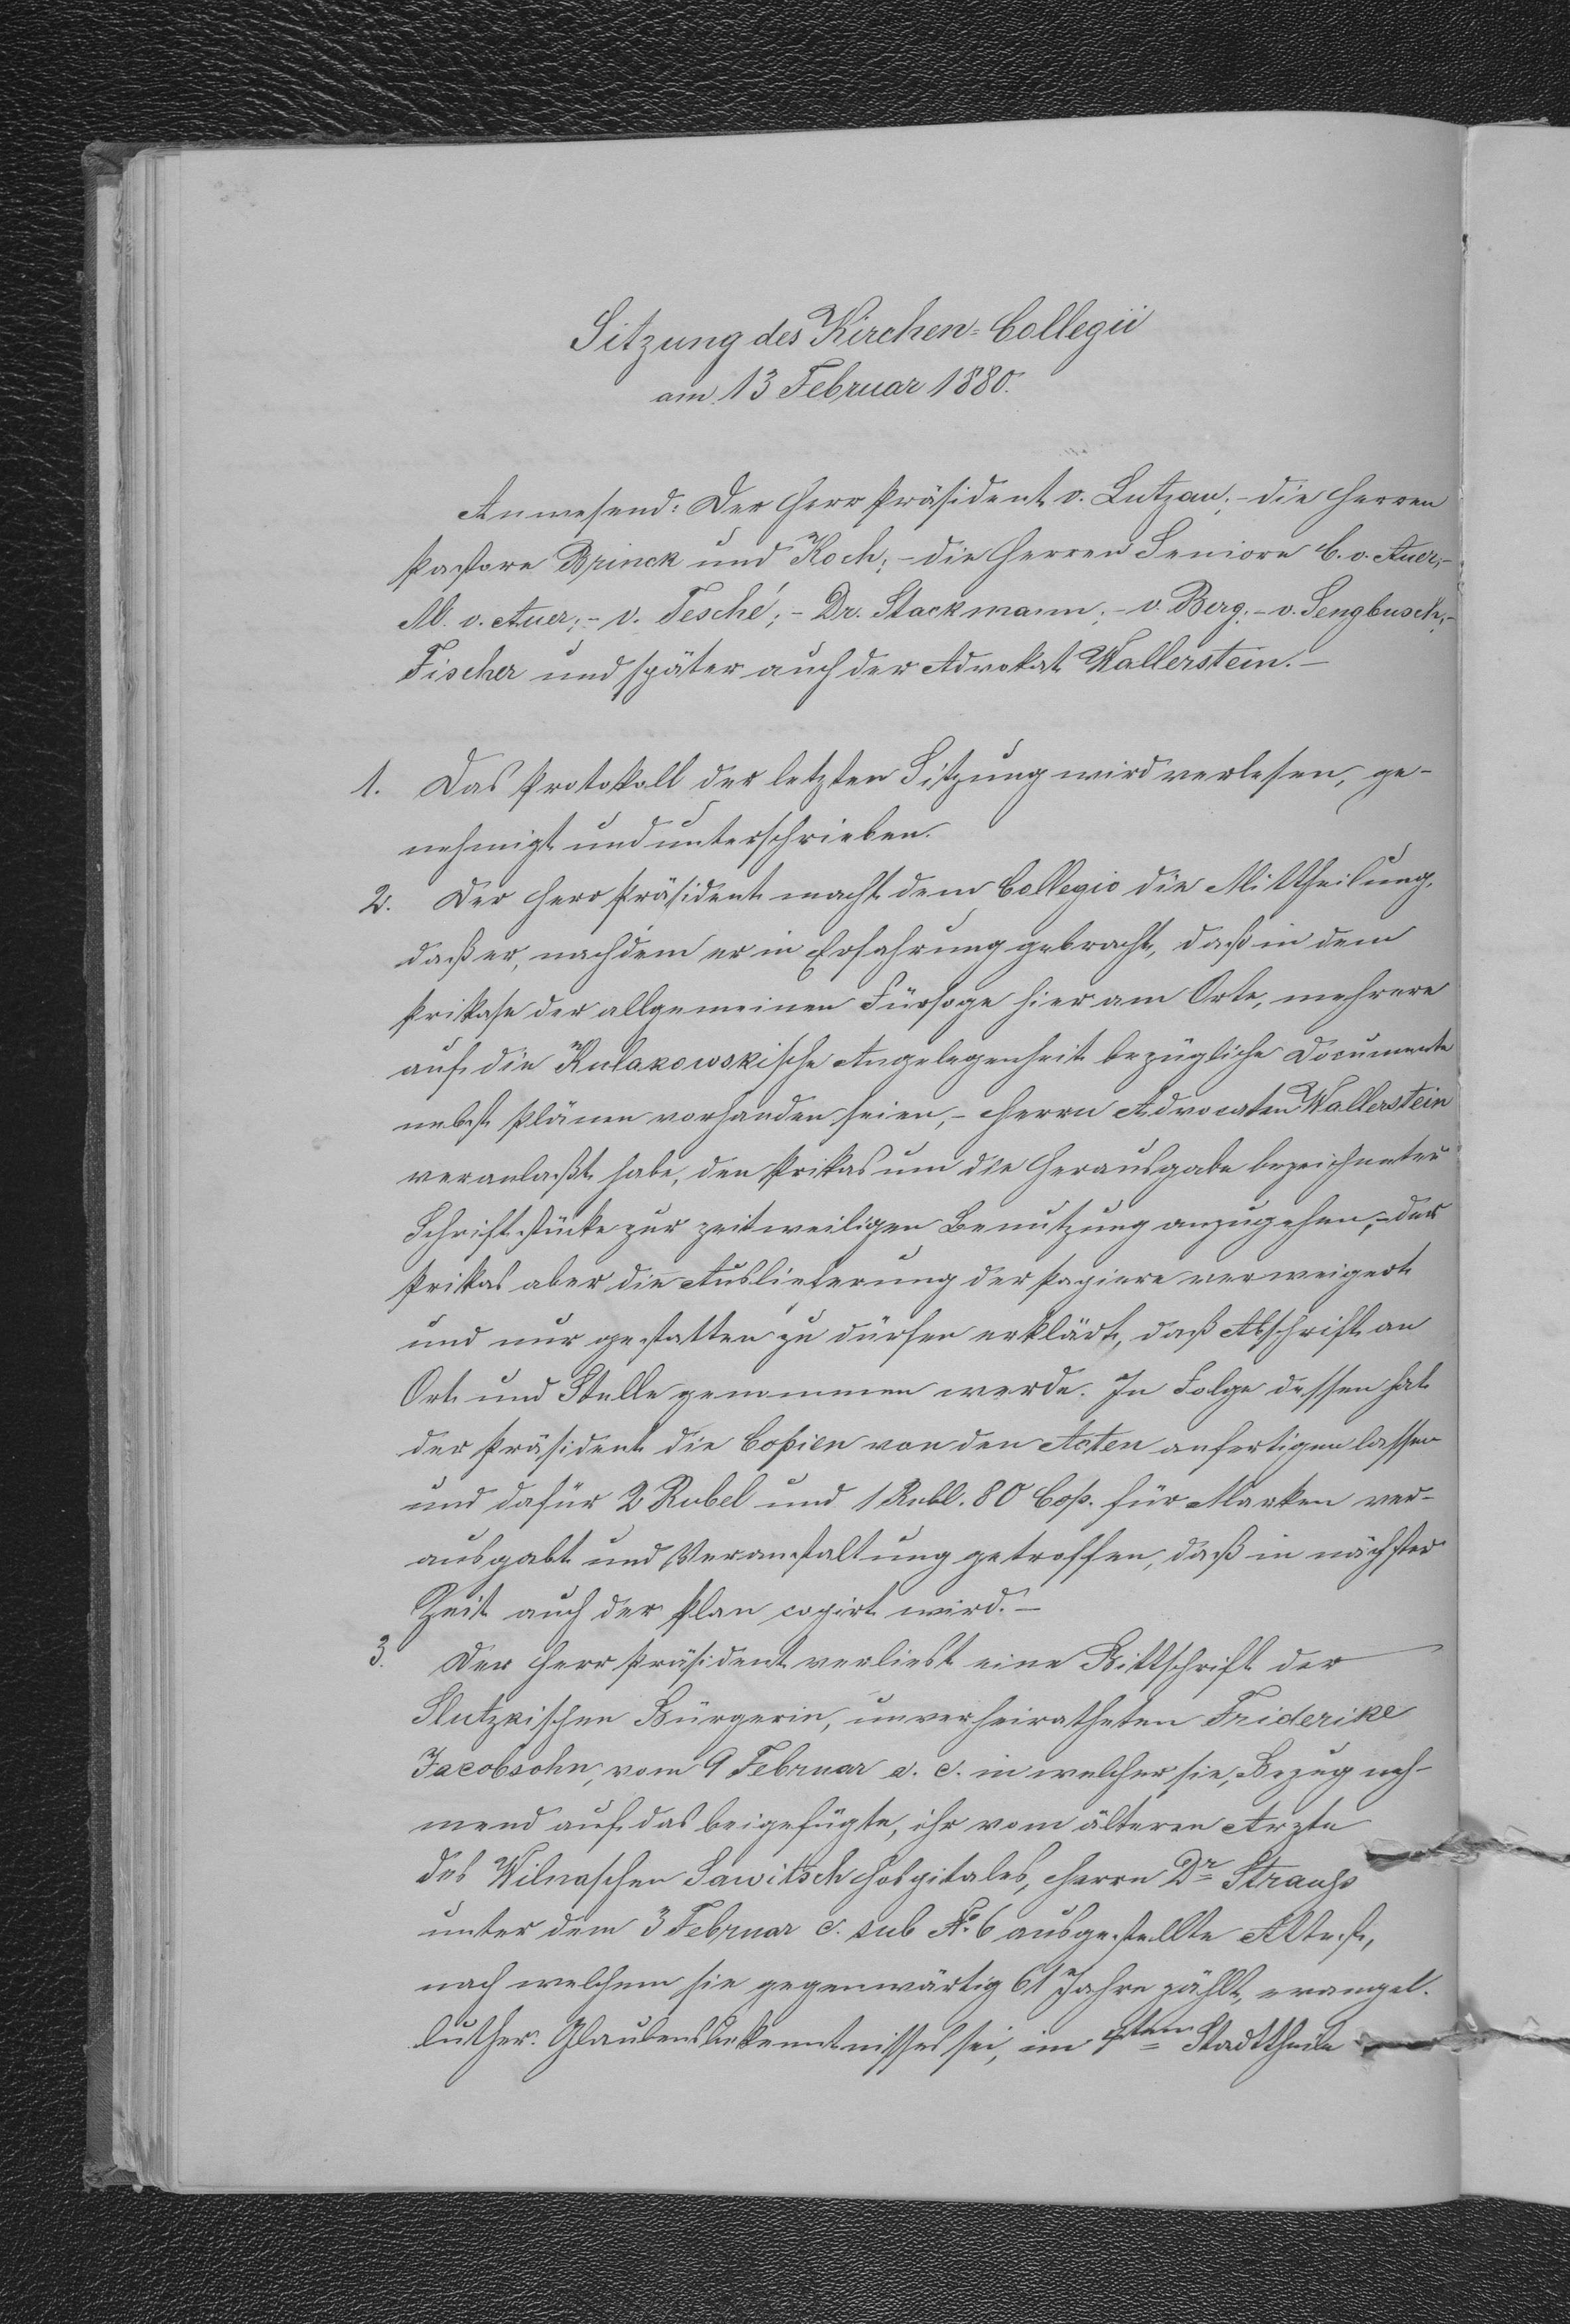 Sitzung des Kirchen-Collegii
am 13 Februar 1880.
Anwesend: Der Herr Präsident v. Lutzau; - die Herren
Pastore Brinck und Koch; - die Herren Seniore C. v. Auer; -
M. v. Auer; - v. Tesché; - Dr. Stackmann; - v. Berg; - v. Sengbusch; -
Fischer und später auch der Advokat Wallerstein. -
1. Das Protokoll der letzten Sitzung wird verlesen, ge-
nehmigt und unterschrieben.
2. Der Herr Präsident macht dem Collegio die Mittheilung,
daß er, nachdem er in Erfahrung gebracht, daß in dem
Prikase der allgemeinen Fürsoge hier am Orte, mehrere
auf die Kulakowskische Angelegenheit bezügliche Documente
nebst Plänen vorhanden seien, - Herrn Advocaten Wallerstein
veranlaßt habe, den Prikas um die Herausgabe bezeichneter
Schriftstücke zur zeitweiligen Benutzung anzugehen, - der
Prikas aber die Auslieferung der Papiere verweigert
und nur gestatten zu dürfen erklärt, daß Abschrift an
Ort und Stelle genommen werde. In Folge dessen hat
der Präsident die Copien von den Acten anfertigen lassen
und dafür 2 Rubel und 1 Rubl. 80 Cop. für Marken ver-
ausgabt und Veranstaltung getroffen, daß in nächster
Zeit auch der Plan copirt wird. -
3. Der Herr Präsident verliest eine Bittschrift der
Slutzkischen Bürgerin, unverheiratheten Friderike
Jacobsohn, vom 9 Februar a. c. in welcher sie, Bezug neh-
mend auf das beigefügte, ihr vom älteren Arzte
des Wilnaschen Sawitsch Hospitales, Herrn Dr Strauss
unter dem 3 Februar c. sub No 6 ausgestellte Attest,
nach welchem sie gegenwärtig 61 Jahre zählt, evangel.
luther. Glaubensbekenntnisses sei, im 4ten Stadttheile